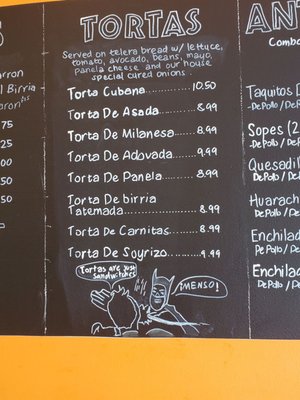 TORTAS
Served on telera bread w/ lettuce,
tomato, avocado, beans, mayo,
panela cheese and our house
special cured onions
Torta Cubana............10.50
Torta De Asada.........8.99
Torta De Milanesa......8.99
Torta De Adovada......9.99
Torta De Panela........8.99
Torta De birria
Tatemada..............8.99
Torta De Carnitas......8.99
Torta De Soyrizo.......9.99
Tortas are just
sandwiches
¡MENSO!
Birria
75
25
00
50
50
AN
Combo
Taquitos
-De Pollo/De
Sopes (2
De Pollo / De
Quesadil
De Pollo / De
Huarach
De Pollo / De
Enchilad
De Pollo / De
Enchilad
De Pollo / De